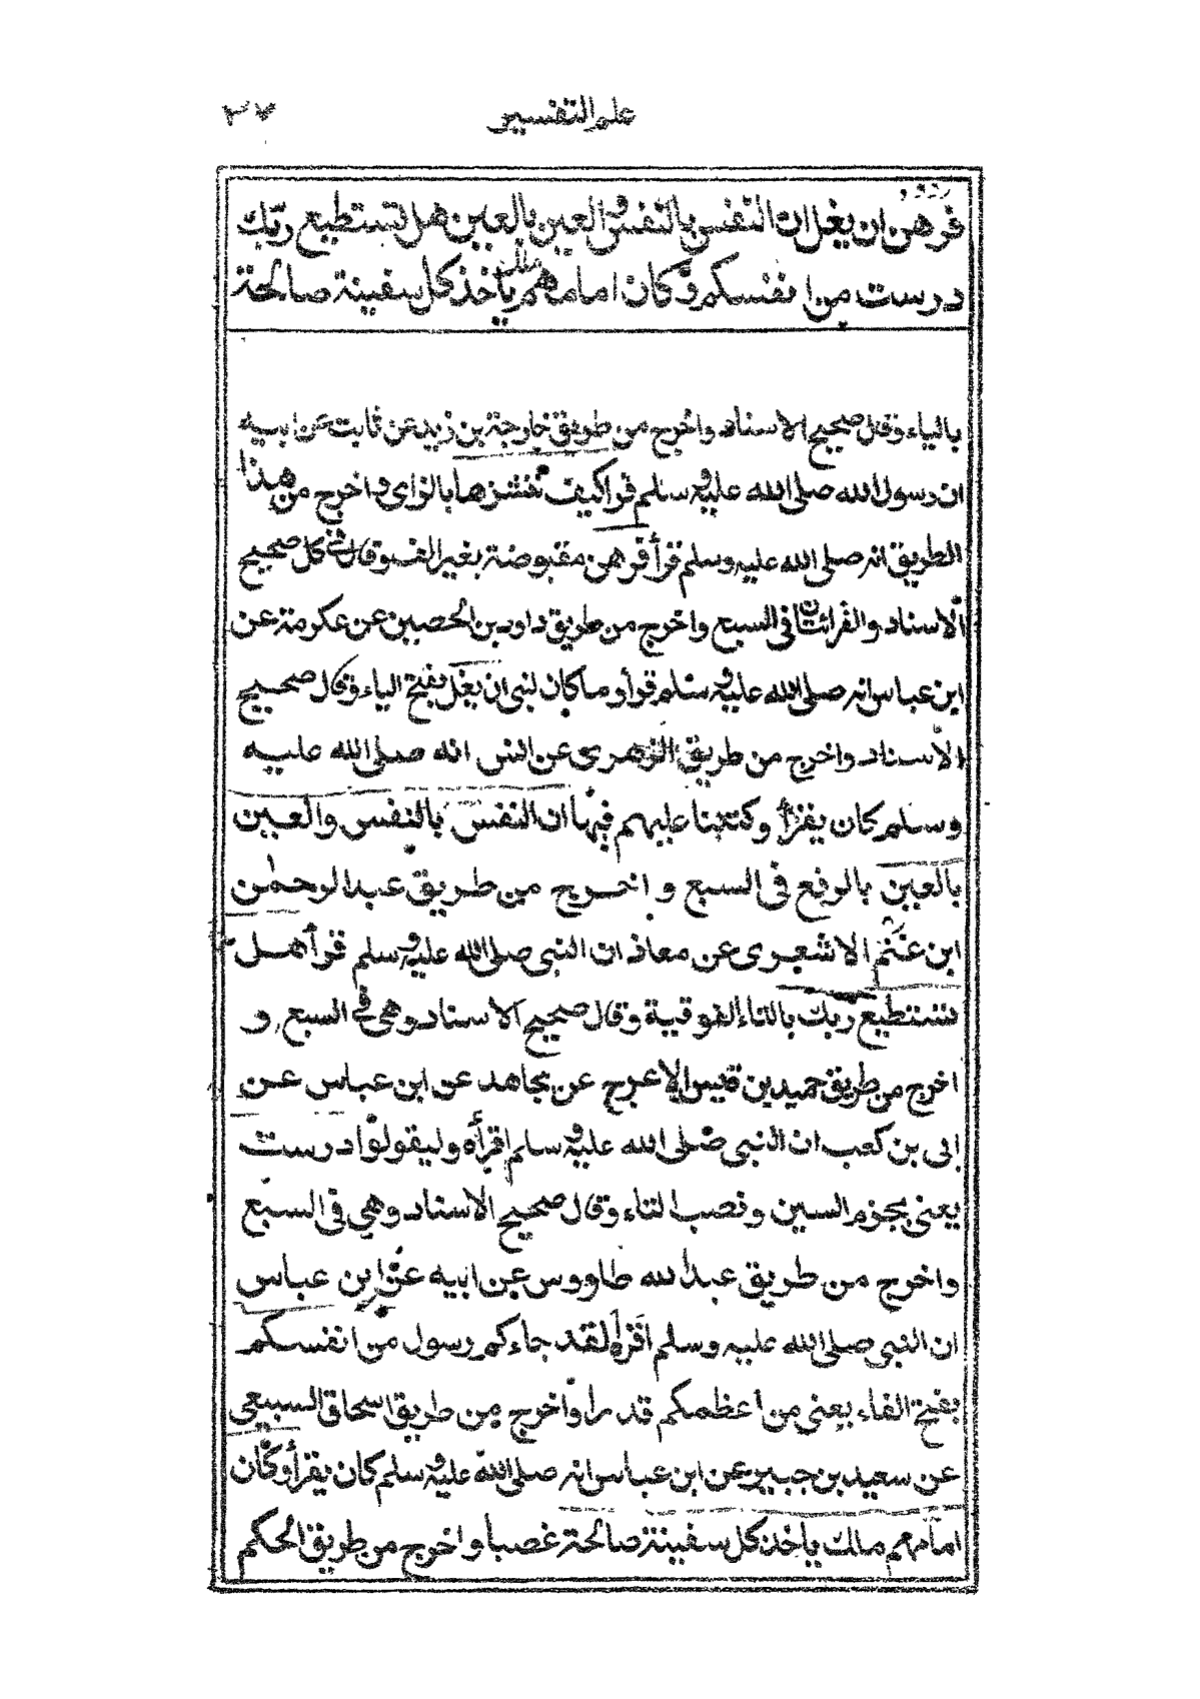 علم التفسير ٣٧
فرهن ان يغل ان النفس بالنفس و العين بالعين هل تستطيع ربك
درست من انفسكم وكان امامهم ملك ياخذ كل سفينة صالحة
بالياء وقال صحيح الاسناد واخرج من طريق خارجة بن زيد عن ثابت عن ابيه
ان رسول الله صلى الله عليه وسلم قرا كيف ننشزها بالزاى و اخرج من هذا
الطريق انه صلى الله عليه وسلم قرأ فرهن مقبوضة بغير الف وقال فى كل صحيح
الاسناد والقرائتان فى السبع واخرج من طريق داود بن الحصين عن عكرمة عن
ابن عباس انه صلى الله عليه وسلم قرأ وما كان لنبى ان يغل بفتح الياء وقال صحيح
الاسناد واخرج من طريق الزهرى عن انس انه صلى الله عليه
وسلم كان يقرأ وكتبنا عليهم فيها ان النفس بالنفس والعين
بالعين بالرفع فى السبع و اخرج من طريق عبد الرحمٰن
ابن غنم الاشعرى عن معاذ ان النبى صلى الله عليه وسلم قرأ هل
تستطيع ربك بالتاء الفوقية وقال صحيح الاسناد وهى فى السبع و
اخرج من طريق حميد بن قيس الاعرج عن مجاهد عن ابن عباس عن
ابى بن كعب ان النبى صلى الله عليه وسلم اقرأه وليقولوا درست
يعنى بجزم السين ونصب التاء وقال صحيح الاسناد وهى فى السبع
واخرج من طريق عبد الله طاووس عن ابيه عن ابن عباس
ان النبى صلى الله عليه وسلم اقرأ لقد جاءكم رسول من انفسكم
بفتح الفاء يعنى من اعظمكم قدرا واخرج من طريق اسحاق السبيعى
عن سعيد بن جبير عن ابن عباس انه صلى الله عليه وسلم كان يقرأ وكان
امامهم مالك ياخذ كل سفينة صالحة غصبا واخرج من طريق الحكم